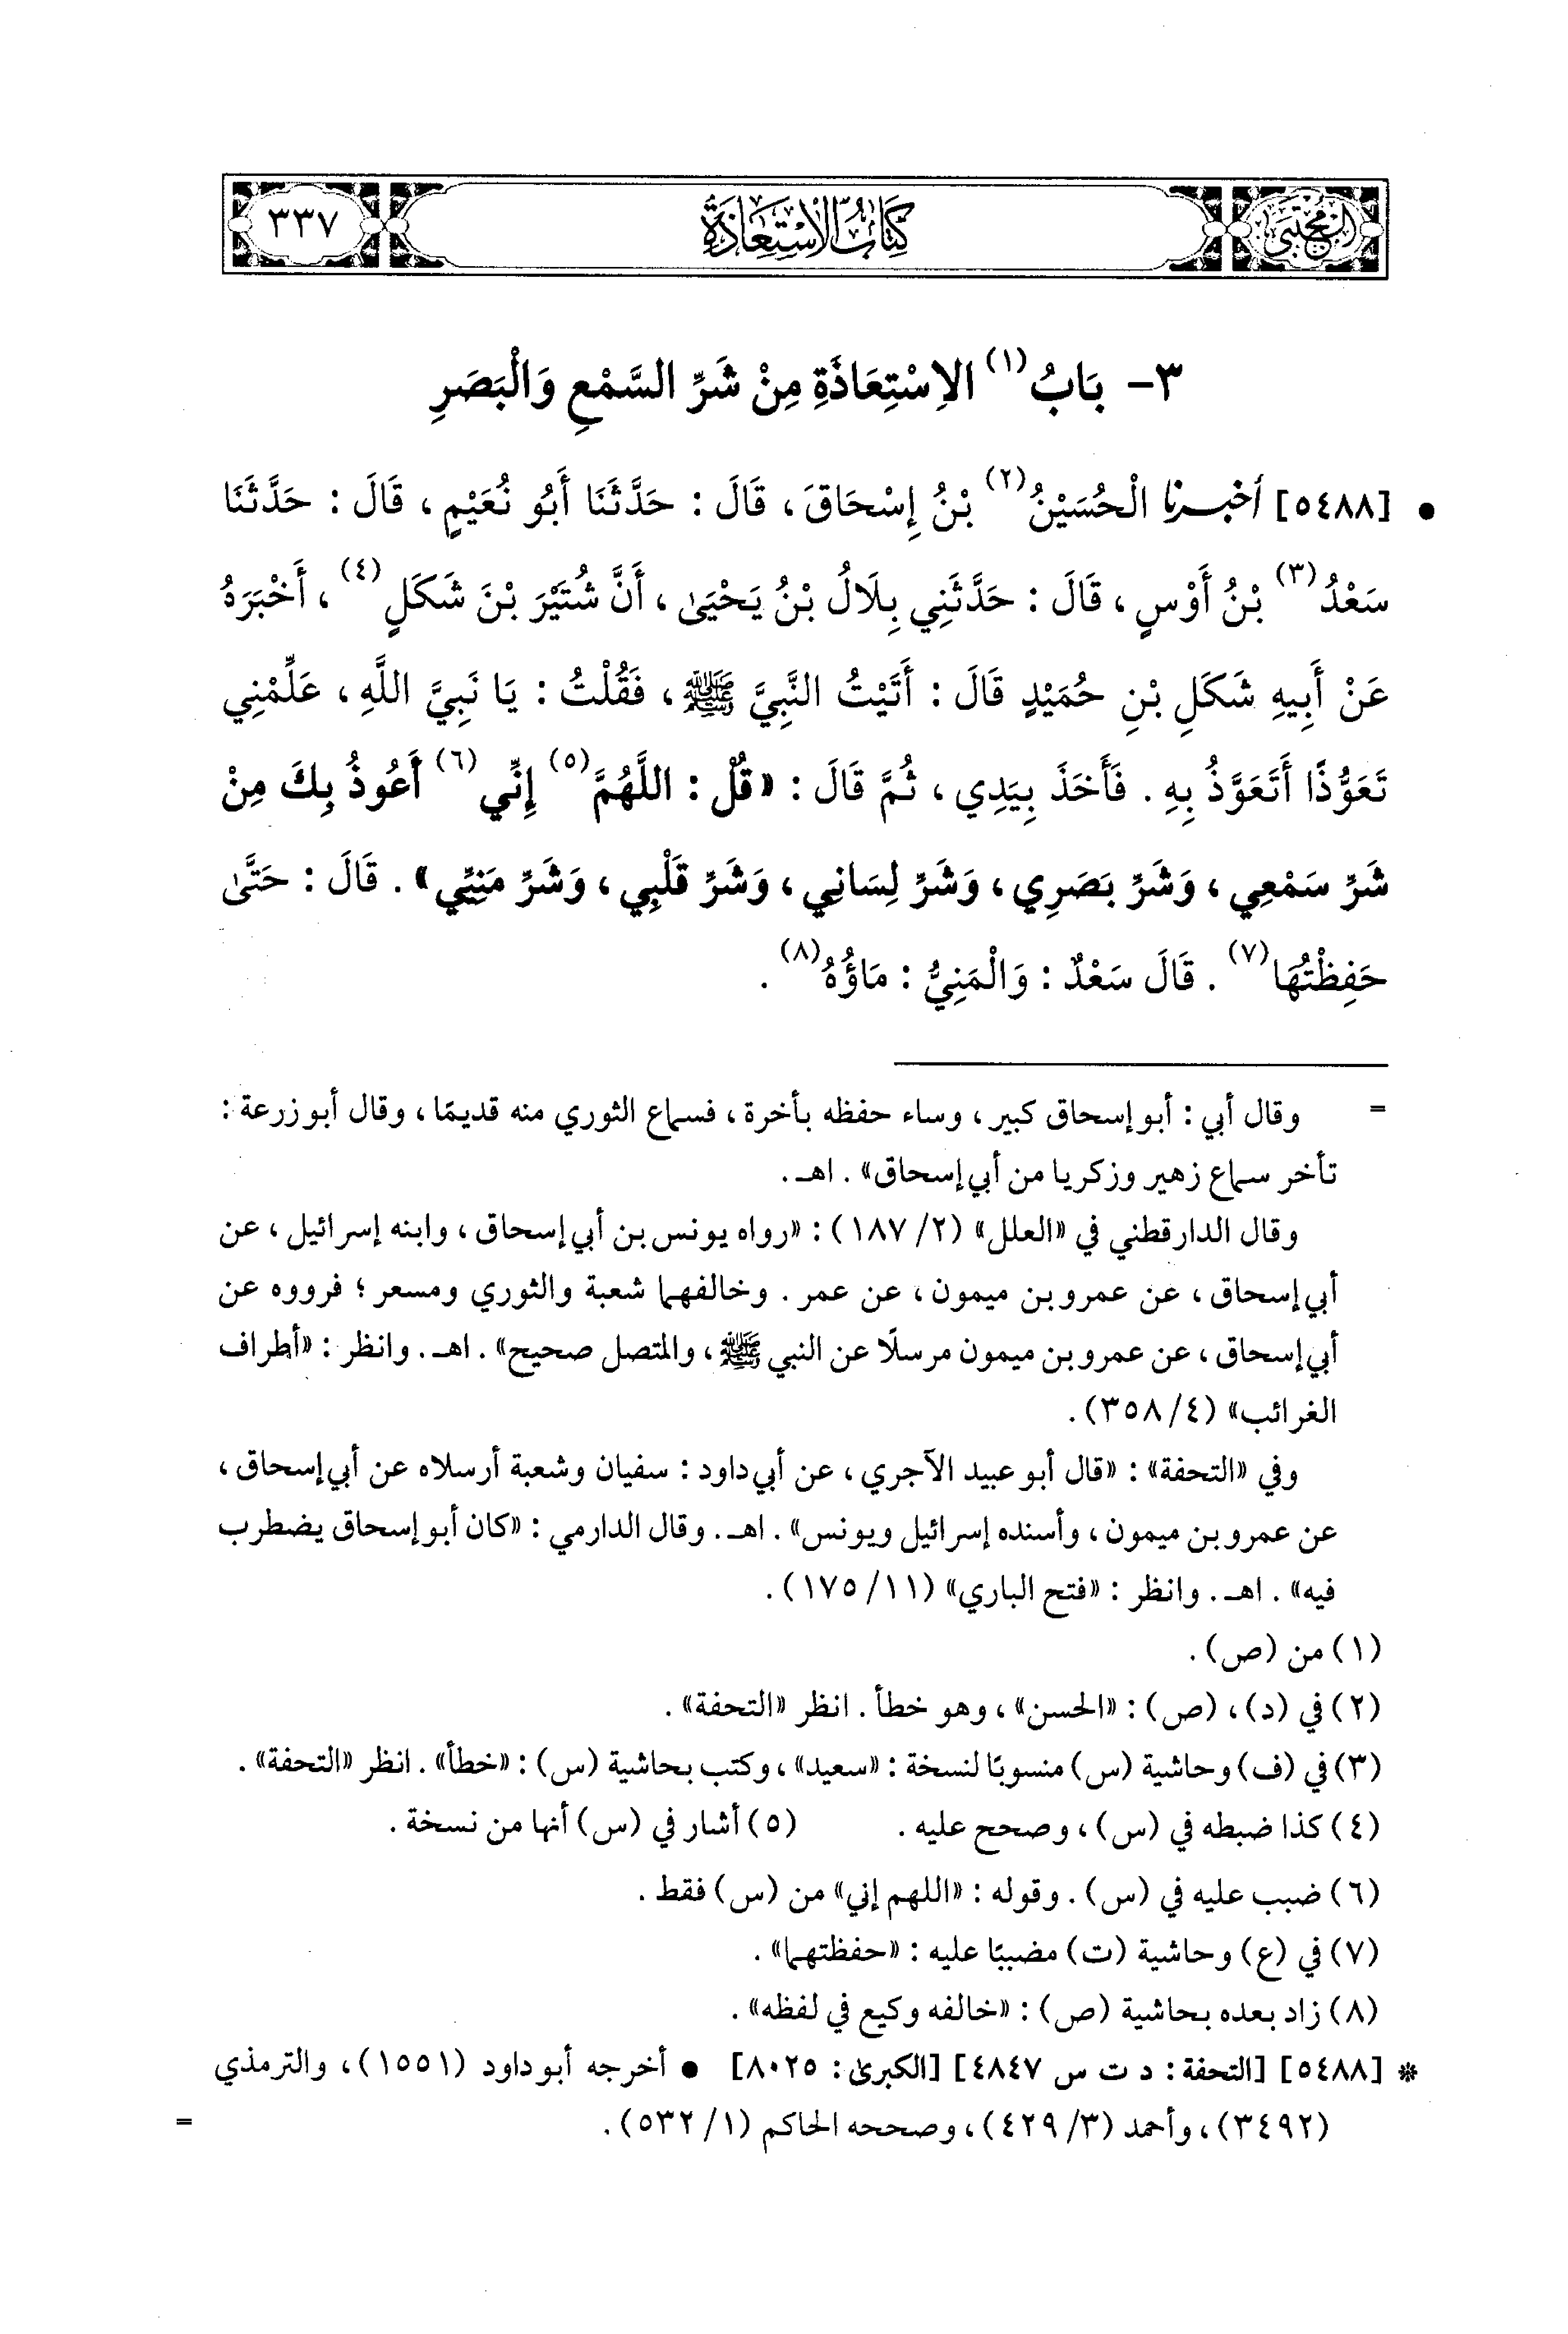 المجتبى
كتاب الاستعاذة
٣٣٧
٣- بَابُ (١) الِاسْتِعَاذَةِ مِنْ شَرِّ السَّمْعِ وَالْبَصَرِ
• [٥٤٨٨] أخبرنا الْحُسَيْنُ (٢) بْنُ إِسْحَاقَ، قَالَ : حَدَّثَنَا أَبُو نُعَيْمٍ، قَالَ : حَدَّثَنَا
سَعْدُ (٣) بْنُ أَوْسٍ، قَالَ : حَدَّثَنِي بِلَالُ بْنُ يَحْيَىٰ، أَنَّ شُتَيْرَ بْنَ شَكَلٍ (٤)، أَخْبَرَهُ
عَنْ أَبِيهِ شَكَلِ بْنِ حُمَيْدٍ قَالَ : أَتَيْتُ النَّبِيَّ ﷺ، فَقُلْتُ : يَا نَبِيَّ اللَّهِ، عَلِّمْنِي
تَعَوُّذًا أَتَعَوَّذُ بِهِ . فَأَخَذَ بِيَدِي، ثُمَّ قَالَ : «قُلْ : اللَّهُمَّ (٥) إِنِّي (٦) أَعُوذُ بِكَ مِنْ
شَرِّ سَمْعِي، وَشَرِّ بَصَرِي، وَشَرِّ لِسَانِي، وَشَرِّ قَلْبِي، وَشَرِّ مَنِيِّي» . قَالَ : حَتَّىٰ
حَفِظْتُهَا (٧) . قَالَ سَعْدٌ : وَالْمَنِيُّ : مَاؤُهُ (٨) .
= وقال أبي : أبو إسحاق كبير، وساء حفظه بأخرة، فسماع الثوري منه قديمًا، وقال أبو زرعة :
تأخر سماع زهير وزكريا من أبي إسحاق» . اهـ.
وقال الدارقطني في «العلل» (٢/ ١٨٧) : «رواه يونس بن أبي إسحاق، وابنه إسرائيل، عن
أبي إسحاق، عن عمرو بن ميمون، عن عمر . وخالفهما شعبة والثوري ومسعر؛ فرووه عن
أبي إسحاق، عن عمرو بن ميمون مرسلًا عن النبي ﷺ، والمتصل صحيح» . اهـ. وانظر : «أطراف
الغرائب» (٤/ ٣٥٨).
وفي «التحفة» : «قال أبو عبيد الآجري، عن أبي داود : سفيان وشعبة أرسلاه عن أبي إسحاق،
عن عمرو بن ميمون، وأسنده إسرائيل ويونس» . اهـ. وقال الدارمي : «كان أبو إسحاق يضطرب
فيه» . اهـ. وانظر : «فتح الباري» (١١/ ١٧٥).
(١) من (ص) .
(٢) في (د)، (ص) : «الحسن»، وهو خطأ . انظر «التحفة» .
(٣) في (ف) وحاشية (س) منسوبًا لنسخة : «سعيد»، وكتب بحاشية (س) : «خطأ» . انظر «التحفة» .
(٤) كذا ضبطه في (س)، وصحح عليه . (٥) أشار في (س) أنها من نسخة .
(٦) ضبب عليه في (س) . وقوله : «اللهم إني» من (س) فقط .
(٧) في (ع) وحاشية (ت) مضببًا عليه : «حفظتهما» .
(٨) زاد بعده بحاشية (ص) : «خالفه وكيع في لفظه» .
* [٥٤٨٨] [التحفة : د ت س ٤٨٤٧] [الكبرىٰ : ٨٠٢٥] • أخرجه أبو داود (١٥٥١)، والترمذي
(٣٤٩٢)، وأحمد (٣/ ٤٢٩)، وصححه الحاكم (١/ ٥٣٢). =